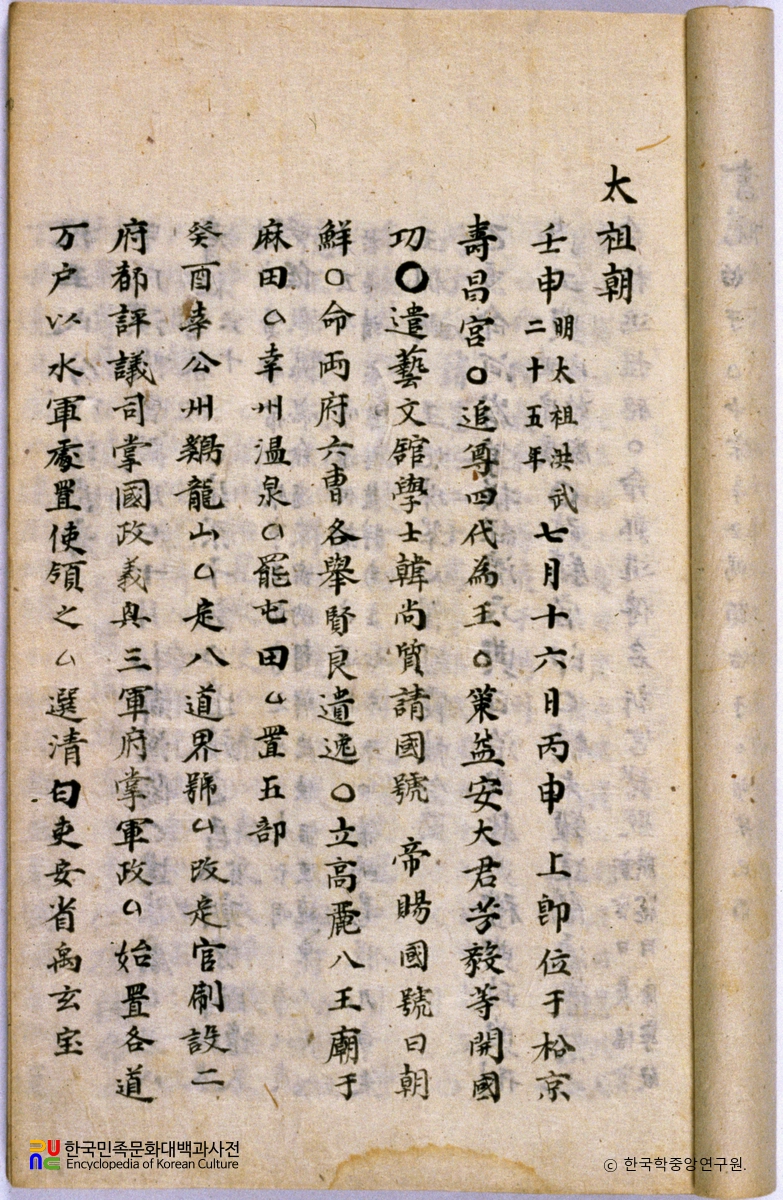 太祖朝
壬申明太祖洪武二十五年七月十六日丙申 上即位于松京
壽昌宮○追尊四代為王○策益安大君芳毅等開國
功○遣藝文舘學士韓尚質請國號 帝賜國號曰朝
鮮○命両府六曹各舉賢良遺逸○立高麗八王廟于
麻田○幸州温泉○罷屯田○置五部
癸酉幸公州鷄龍山○定八道界號○改定官制設二
府都評議司掌國政義興三軍府掌軍政○始置各道
万户以水軍處置使領之○選清白吏安省禹玄宝
한국민족문화대백과사전
Encyclopedia of Korean Culture
ⓒ 한국학중앙연구원.